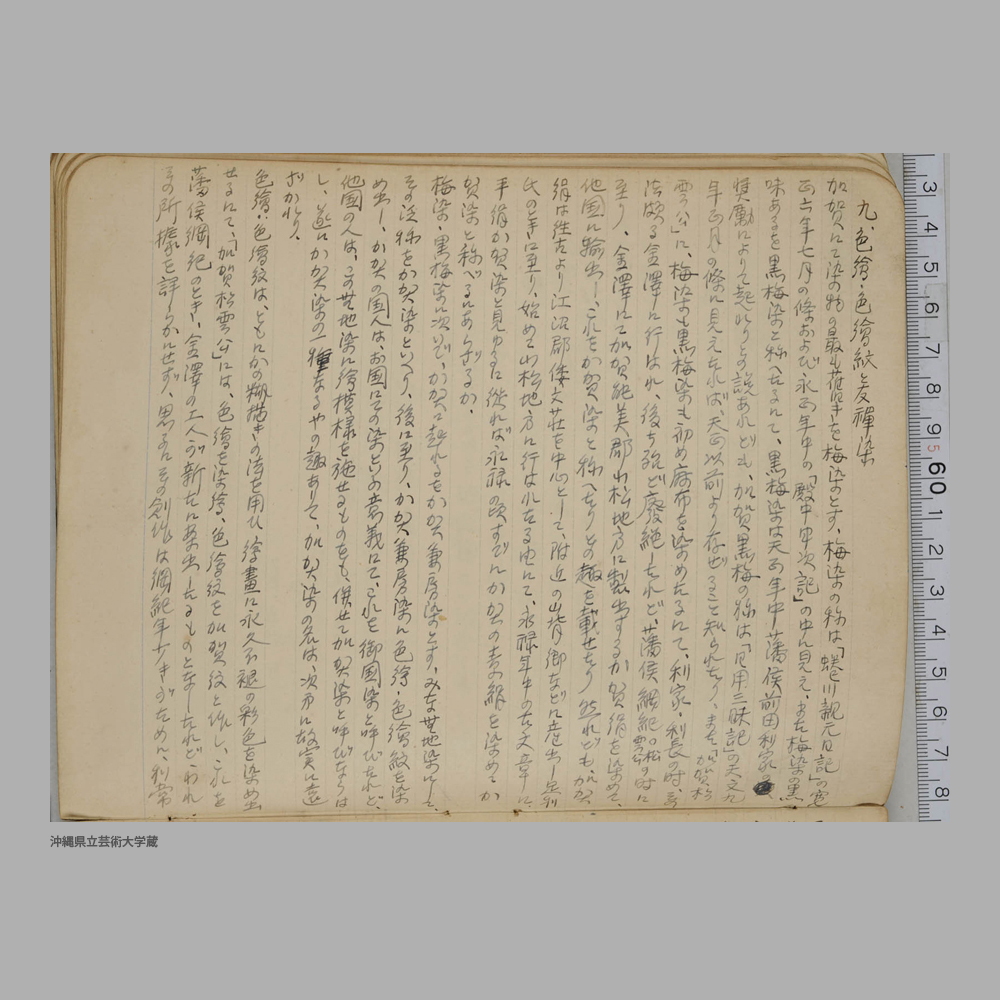 九、色繪・色繪紋と友禪染
加賀にて染物の最も舊きを梅染のとす、梅染の称は「蜷川親元日記」の寛
正六年七月の條および永正年中の「殿中申次記」の中に見え、また梅染の黒
味あるを黒梅染と称へたるにて、黒梅染は天正年中藩侯前田利家の
奨勵によりて起れりとの説あれども、加賀黒梅の称は「日用三昧記」の天文九
年正月の條に見えたれば、天正以前より存せること知られたり、また「加賀松
雲公」に、梅染も黒梅染も初め麻布を染めたるにて、利家・利長の時、
頗る金澤に行はれ、後ち殆ど廢絶したれど、藩侯綱紀の時に
至り、金澤にて加賀能美郡小松地方に製出するか賀絹を染めて、
他国に輸出し、これをか賀染と称へたりとの趣を載せたり 然れどもか賀
絹は往古より江沼郡倭文荘を中心として、附近の山背郷などに産出し
氏のときに至り、始めて小松地方に行はれたる由にて、永禄年中の古文章に
手絹か賀染と見ゆるに從れば永禄の頃すでにか賀の青の絹を染めてか
賀染と称べるにあらざるか、
梅染・黒梅染に次いで、か賀に起れるをか賀兼房染とす、みな無地染にして、
その泛称をか賀染といへり、後に至り、か賀兼房染に色繪・色繪紋を染
め出し、か賀の国人は、お国にての染といふ意義にて、これを御国染と呼びたれど、
他国の人は、この無地染に繪模様を施せるものをも、併せて加賀染と呼びならは
し、遂にか賀染の一種なるやの趣ありて、加賀染の名は、次第に故実に遠
ざかれり、
色繪・色繪紋は、ともにかの糊描きの法を用ひ 繪畫に永久不褪の彩色を染め出
せるにて、「加賀松雲公」には、色繪を染繪、色繪紋を加賀紋と作し、これを
藩侯綱紀のとき、金澤の工人が新たに案出したるものとなしたれど、われ
その所據を詳らかにせず、思ふにその創作は綱紀年少きがために、利常
沖縄県立芸術大学蔵